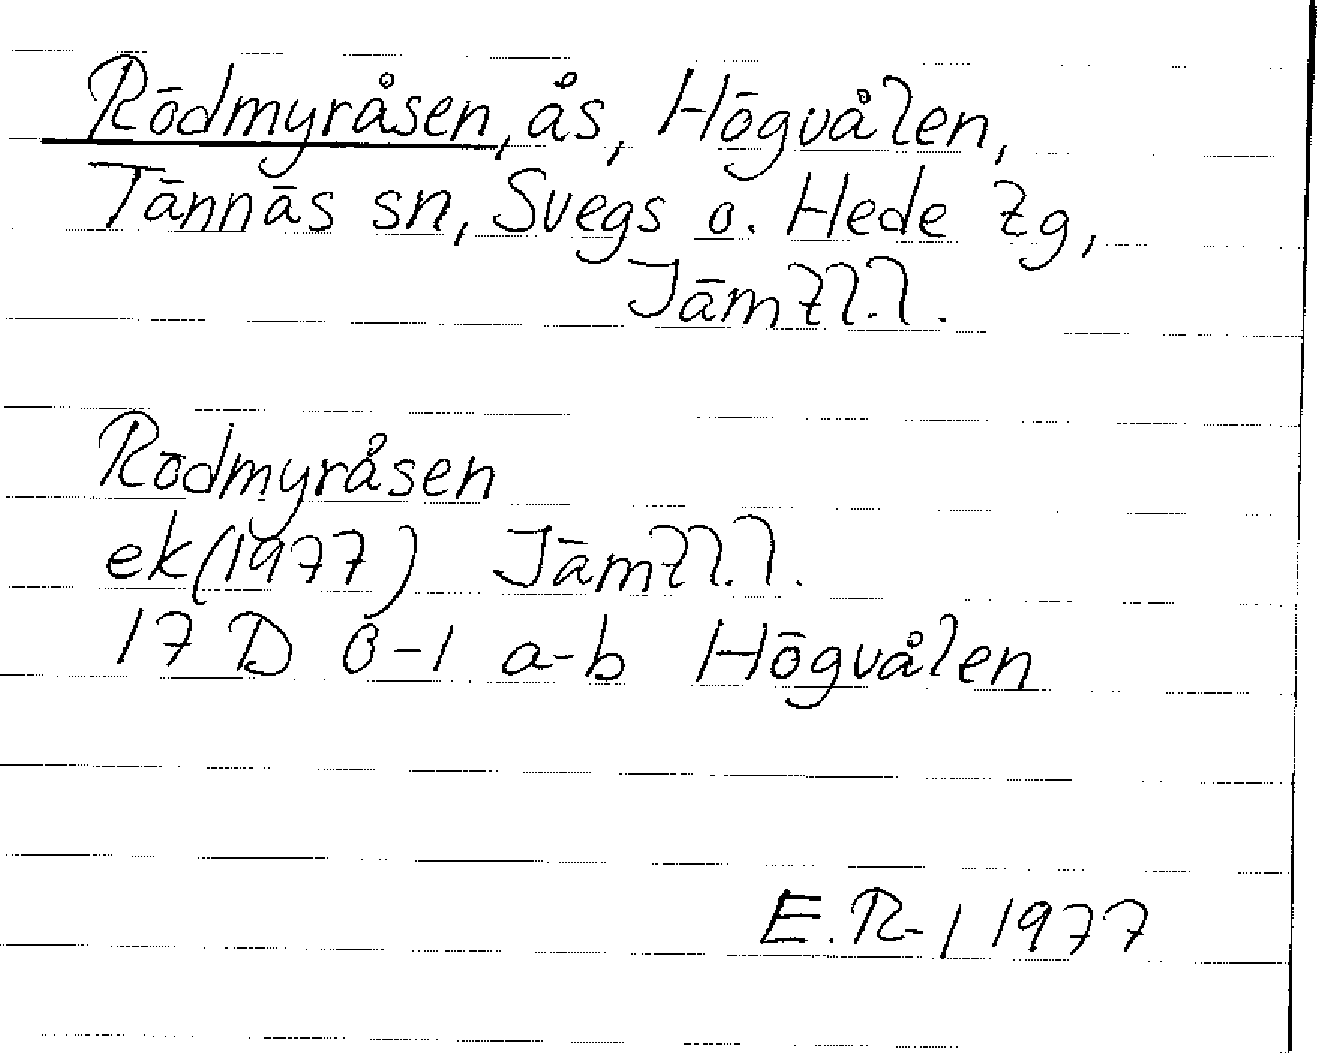 Rödmyråsen, ås, Högvålen,
Tännäs sn, Svegs o. Hede tg,
Jämtl.l.
Rödmyråsen
ek(1977) Jämtl.l.
17 D 0-1 a-b Högvålen
E.R-l 1977